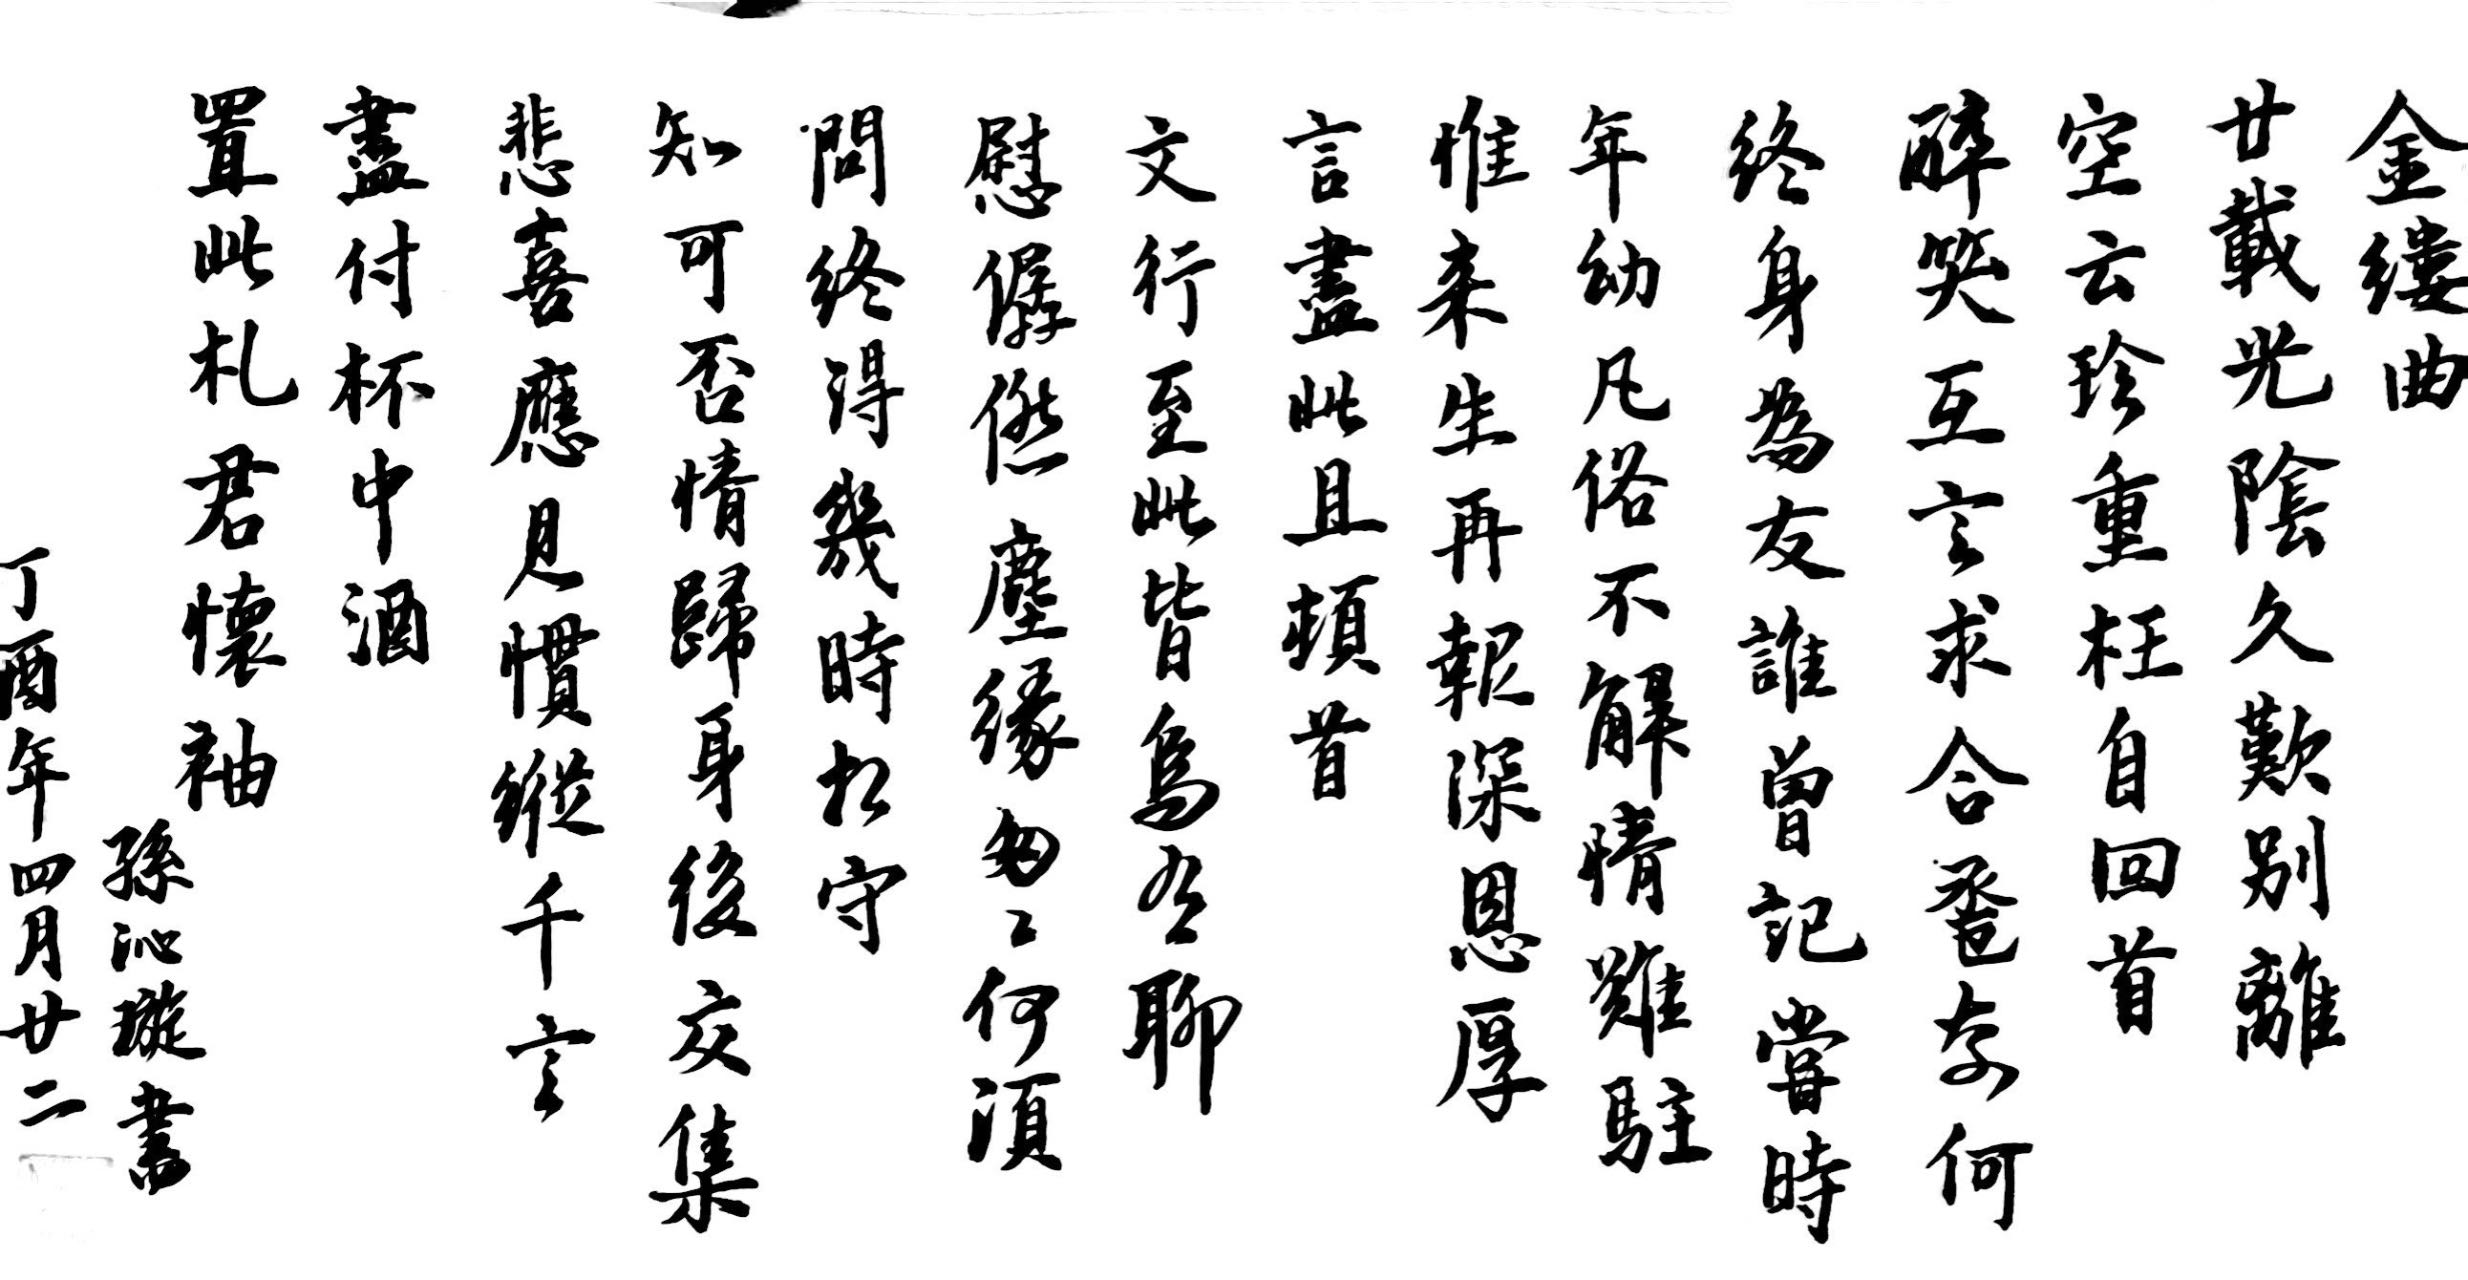 金缕曲
廿載光陰久歎别離
空云珍重枉自回首
醉笑互言求合卺奈何
終身為友誰曾記當時
年幼凡俗不解情難駐
惟来生再報深恩厚
言盡此且頓首
文行至此皆烏有聊
慰孱僽塵緣匆匆何須
問終得幾時相守
知可否情歸身後交集
悲喜應見慣縱千言
盡付杯中酒
置此札君懷袖
孫沁璇書
丁酉年四月廿二